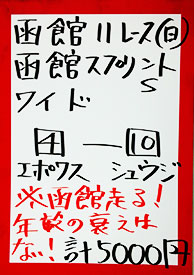 函館11レース(日)
函館スプリントS
ワイド
4 ― 10
エポワス シュウジ
※函館走る!
年齢の衰えは
ない! 計5000円